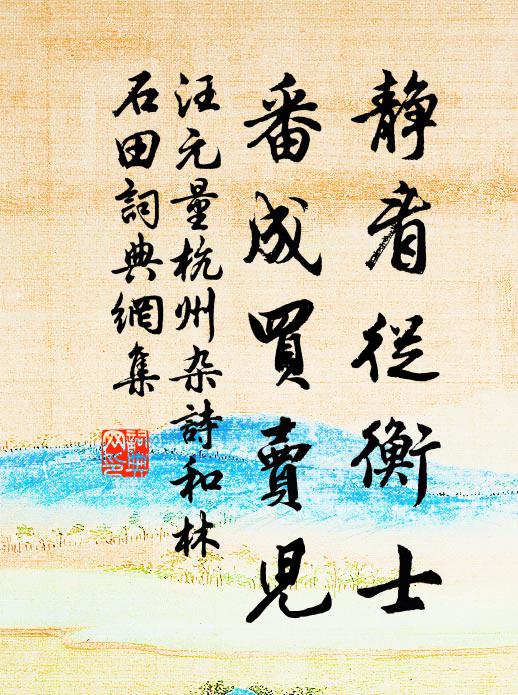 静看從衡士
番成買賣児
汪元量杭州杂詩和林
石田詞典網集